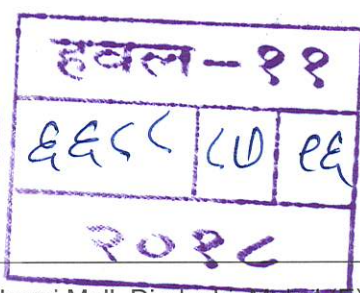 हवल-११
६६८८ ८७ ९६
२०१८